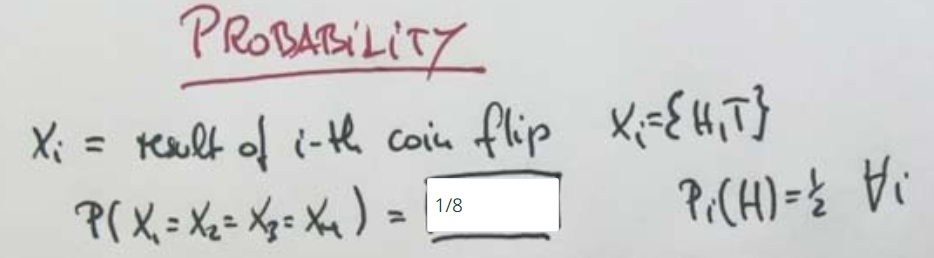 PROBABiLiTY
Xᵢ = result of i-th coin flip Xᵢ={H,T}
P(X₁=X₂=X₃=X₄) = 1/8 Pᵢ(H)=½ ∀i